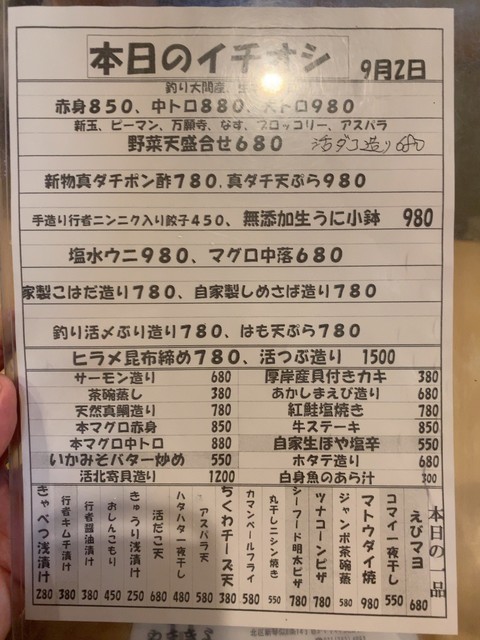 本日のイチオシ
9月2日
釣り大間産、
赤身850、中トロ880、大トロ980
新玉、ピーマン、万願寺、なす、ブロッコリー、アスパラ
野菜天盛合せ680 活ダコ造り680
新物真ダチポン酢780、真ダチ天ぷら980
手造り行者ニンニク入り餃子450、無添加生うに小鉢 980
塩水ウニ980、マグロ中落680
家製こはだ造り780、自家製しめさば造り780
釣り活〆ぶり造り780、はも天ぷら780
ヒラメ昆布締め780、活つぶ造り 1500
サーモン造り 680 厚岸産貝付きカキ 380
茶碗蒸し 380 あかしまえび造り 680
天然真鯛造り 780 紅鮭塩焼き 780
本マグロ赤身 850 牛ステーキ 850
本マグロ中トロ 880 自家生ほや塩辛 550
いかみそバター炒め 550 ホタテ造り 680
活北寄貝造り 1200 白身魚のあら汁 300
本日の一品
えびマヨ 680
コマイ一夜干し 550
マトウダイ焼 980
ジャンボ茶碗蒸 580
ツナコーンピザ 780
シーフード明太ピザ 780
丸干しニシン焼き 550
カマンベールフライ 580
ちくわチーズ天 380
アスパラ天 580
ハタハタ一夜干し 480
活だこ天 680
きゅうり浅漬け 250
おしんこもり 450
行者醤油漬け 380
行者キムチ漬け 380
きゃべつ浅漬け 280